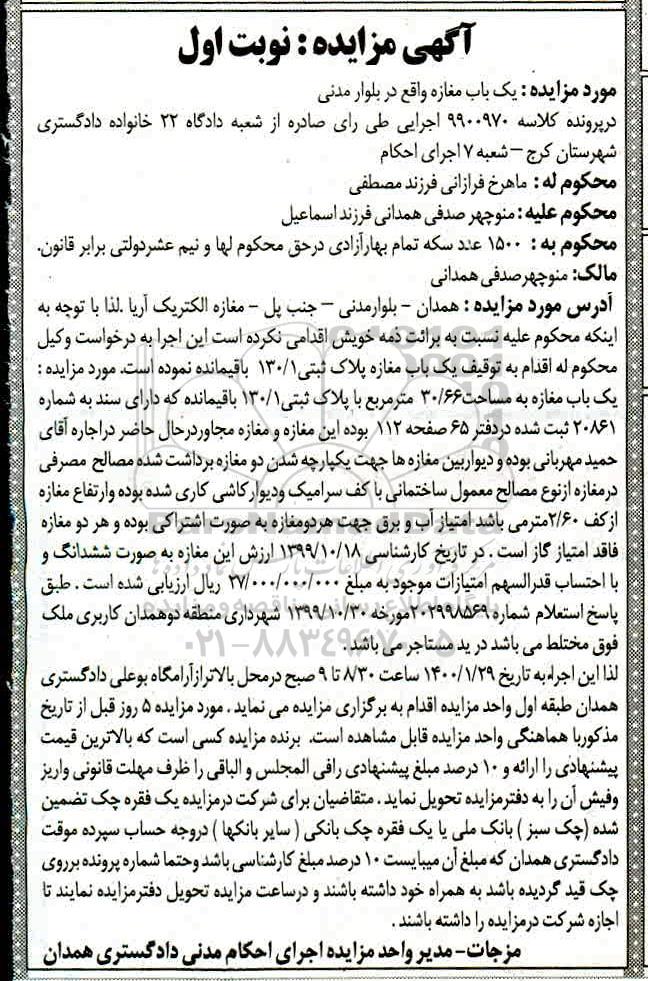 آگهی مزایده : نوبت اول
مورد مزایده : یک باب مغازه واقع در بلوار مدنی
درپرونده کلاسه ۹۹۰۰۹۷۰ اجرایی طی رای صادره از شعبه دادگاه ۲۲ خانواده دادگستری
شهرستان کرج – شعبه ۷ اجرای احکام
محکوم له : ماهرخ فرازانی فرزند مصطفی
محکوم علیه : منوچهر صدفی همدانی فرزند اسماعیل
محکوم به : ۱۵۰۰ عدد سکه تمام بهارآزادی درحق محکوم لها و نیم عشردولتی برابر قانون.
مالک: منوچهرصدفی همدانی
آدرس مورد مزایده : همدان - بلوارمدنی – جنب پل - مغازه الکتریک آریا .لذا با توجه به
اینکه محکوم علیه نسبت به برائت ذمه خویش اقدامی نکرده است این اجرا به درخواست وکیل
محکوم له اقدام به توقیف یک باب مغازه پلاک ثبتی۱۳۰/۱ باقیمانده نموده است. مورد مزایده :
یک باب مغازه به مساحت۳۰/۶۶ مترمربع با پلاک ثبتی۱۳۰/۱ باقیمانده که دارای سند به شماره
۲۰۸۶۱ ثبت شده دردفتر ۶۵ صفحه ۱۱۲ بوده این مغازه و مغازه مجاوردرحال حاضر دراجاره آقای
حمید مهربانی بوده و دیواربین مغازه ها جهت یکپارچه شدن دو مغازه برداشت شده مصالح مصرفی
درمغازه ازنوع مصالح معمول ساختمانی با کف سرامیک ودیوارکاشی کاری شده بوده وارتفاع مغازه
ازکف ۲/۶۰مترمی باشد امتیاز آب و برق جهت هردومغازه به صورت اشتراکی بوده و هر دو مغازه
فاقد امتیاز گاز است . در تاریخ کارشناسی ۱۳۹۹/۱۰/۱۸ ارزش این مغازه به صورت ششدانگ و
با احتساب قدرالسهم امتیازات موجود به مبلغ ۲۷/۰۰۰/۰۰۰/۰۰۰ ریال ارزیابی شده است . طبق
پاسخ استعلام شماره ۲۰۲۹۹۸۵۶۹مورخه ۱۳۹۹/۱۰/۳۰ شهرداری منطقه دوهمدان کاربری ملک
فوق مختلط می باشد در ید مستاجر می باشد .
لذا این اجراء به تاریخ ۱۴۰۰/۱/۲۹ ساعت ۸/۳۰ تا ۹ صبح درمحل بالاترازآرامگاه بوعلی دادگستری
همدان طبقه اول واحد مزایده اقدام به برگزاری مزایده می نماید . مورد مزایده ۵ روز قبل از تاریخ
مذکوربا هماهنگی واحد مزایده قابل مشاهده است. برنده مزایده کسی است که بالاترین قیمت
پیشنهادی را ارائه و ۱۰ درصد مبلغ پیشنهادی رافی المجلس و الباقی را ظرف مهلت قانونی واریز
وفیش آن را به دفترمزایده تحویل نماید . متقاضیان برای شرکت درمزایده یک فقره چک تضمین
شده (چک سبز ) بانک ملی یا یک فقره چک بانکی ( سایر بانکها ) دروجه حساب سپرده موقت
دادگستری همدان که مبلغ آن میبایست ۱۰ درصد مبلغ کارشناسی باشد وحتما شماره پرونده برروی
چک قید گردیده باشد به همراه خود داشته باشند و درساعت مزایده تحویل دفترمزایده نمایند تا
اجازه شرکت درمزایده را داشته باشند .
مزجات- مدیر واحد مزایده اجرای احکام مدنی دادگستری همدان
۰۲۱-۸۸۳۴۹۶۷۰-۵